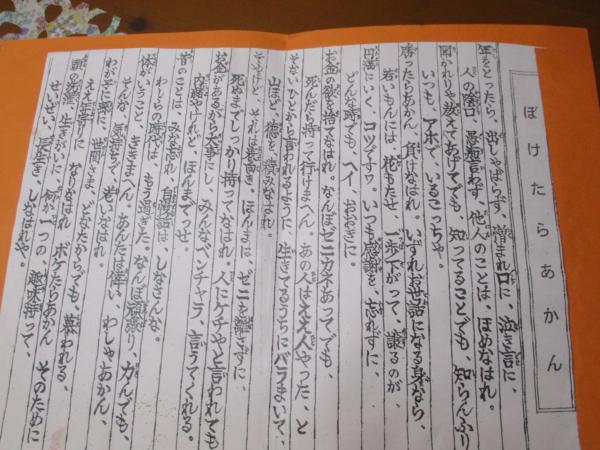 ぼけたらあかん
年をとったら、出しゃばらず、憎まれ口に、泣き言に、
人の陰口、愚痴言わず、他人のことは、ほめなはれ。
聞かれりゃ教えてあげてでも、知ってることでも、知らんふり
いつも、アホで、いるこっちゃ。
勝ったらあかん、負けなはれ。いづれお世話になる身なら、
若いもんには、花もたせ、一歩下がって、譲るのが、
円満にいく、コツですわ。いつも感謝を、忘れずに、
どんな時でも、へイ、おおきに。
お金の欲を捨てなはれ。なんぼゼニカネあってでも、
死んだら持って行けまへん。あの人はええ人やった、と
そないひとから言われるように、生きてるうちにバラまいて、
山ほど、徳を、積みなはれ。
そやけど、それは表向き、ほんまは、ゼニを離さずに、
死ぬまでしっかり持ってなはれ。人にケチやと言われても
お金があるから大事にし、みんなベンチャラ、言うてくれる。
内緒やけれど、ほんまでっせ。
昔のことは、みな忘れ、自慢話は、しなさんな。
わしらの時代は、もう過ぎた。なんぼ頑張り、力んでも、
体がいうこと、ききまへん。あんたは偉い、わしゃあかん、
そんな、気持ちで、老いなはれ。
わが子に孫に、世間さま、どなたからでも、慕われる、
ええ年寄りに、なりなはれ。ボケたらあかん そのために
頭の洗濯、生きがいに、何か一つの、趣味持って、
せいぜい、長生き、しなはれや。